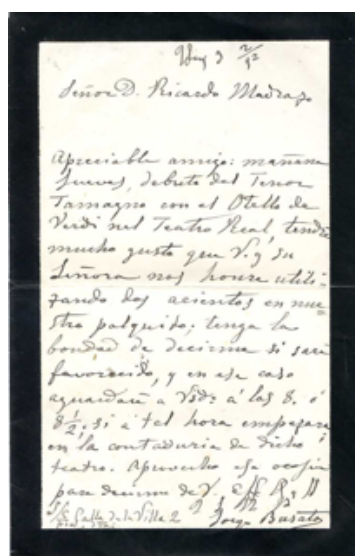 Hoy 3 2/92
Señor D. Ricardo Madrazo
Apreciable amigo: mañana
Jueves, debuto del Tenor
Tamagno con el Otello de
Verdi nel Teatro Real, tendré
mucho gusto que V. y su
Señora nos honre utili-
zando dos acientos en nue
stro palquito; tenga la
bondad de decirme si sará
favorecido, y en ese caso
aguardará a Vds: á las 8. ó
8 1/2, si a tel hora empezara
en la contaduria de dicho
teatro. Aprovecho esa ocasin
para decirme de V.
S/C Calle de la Villa 2